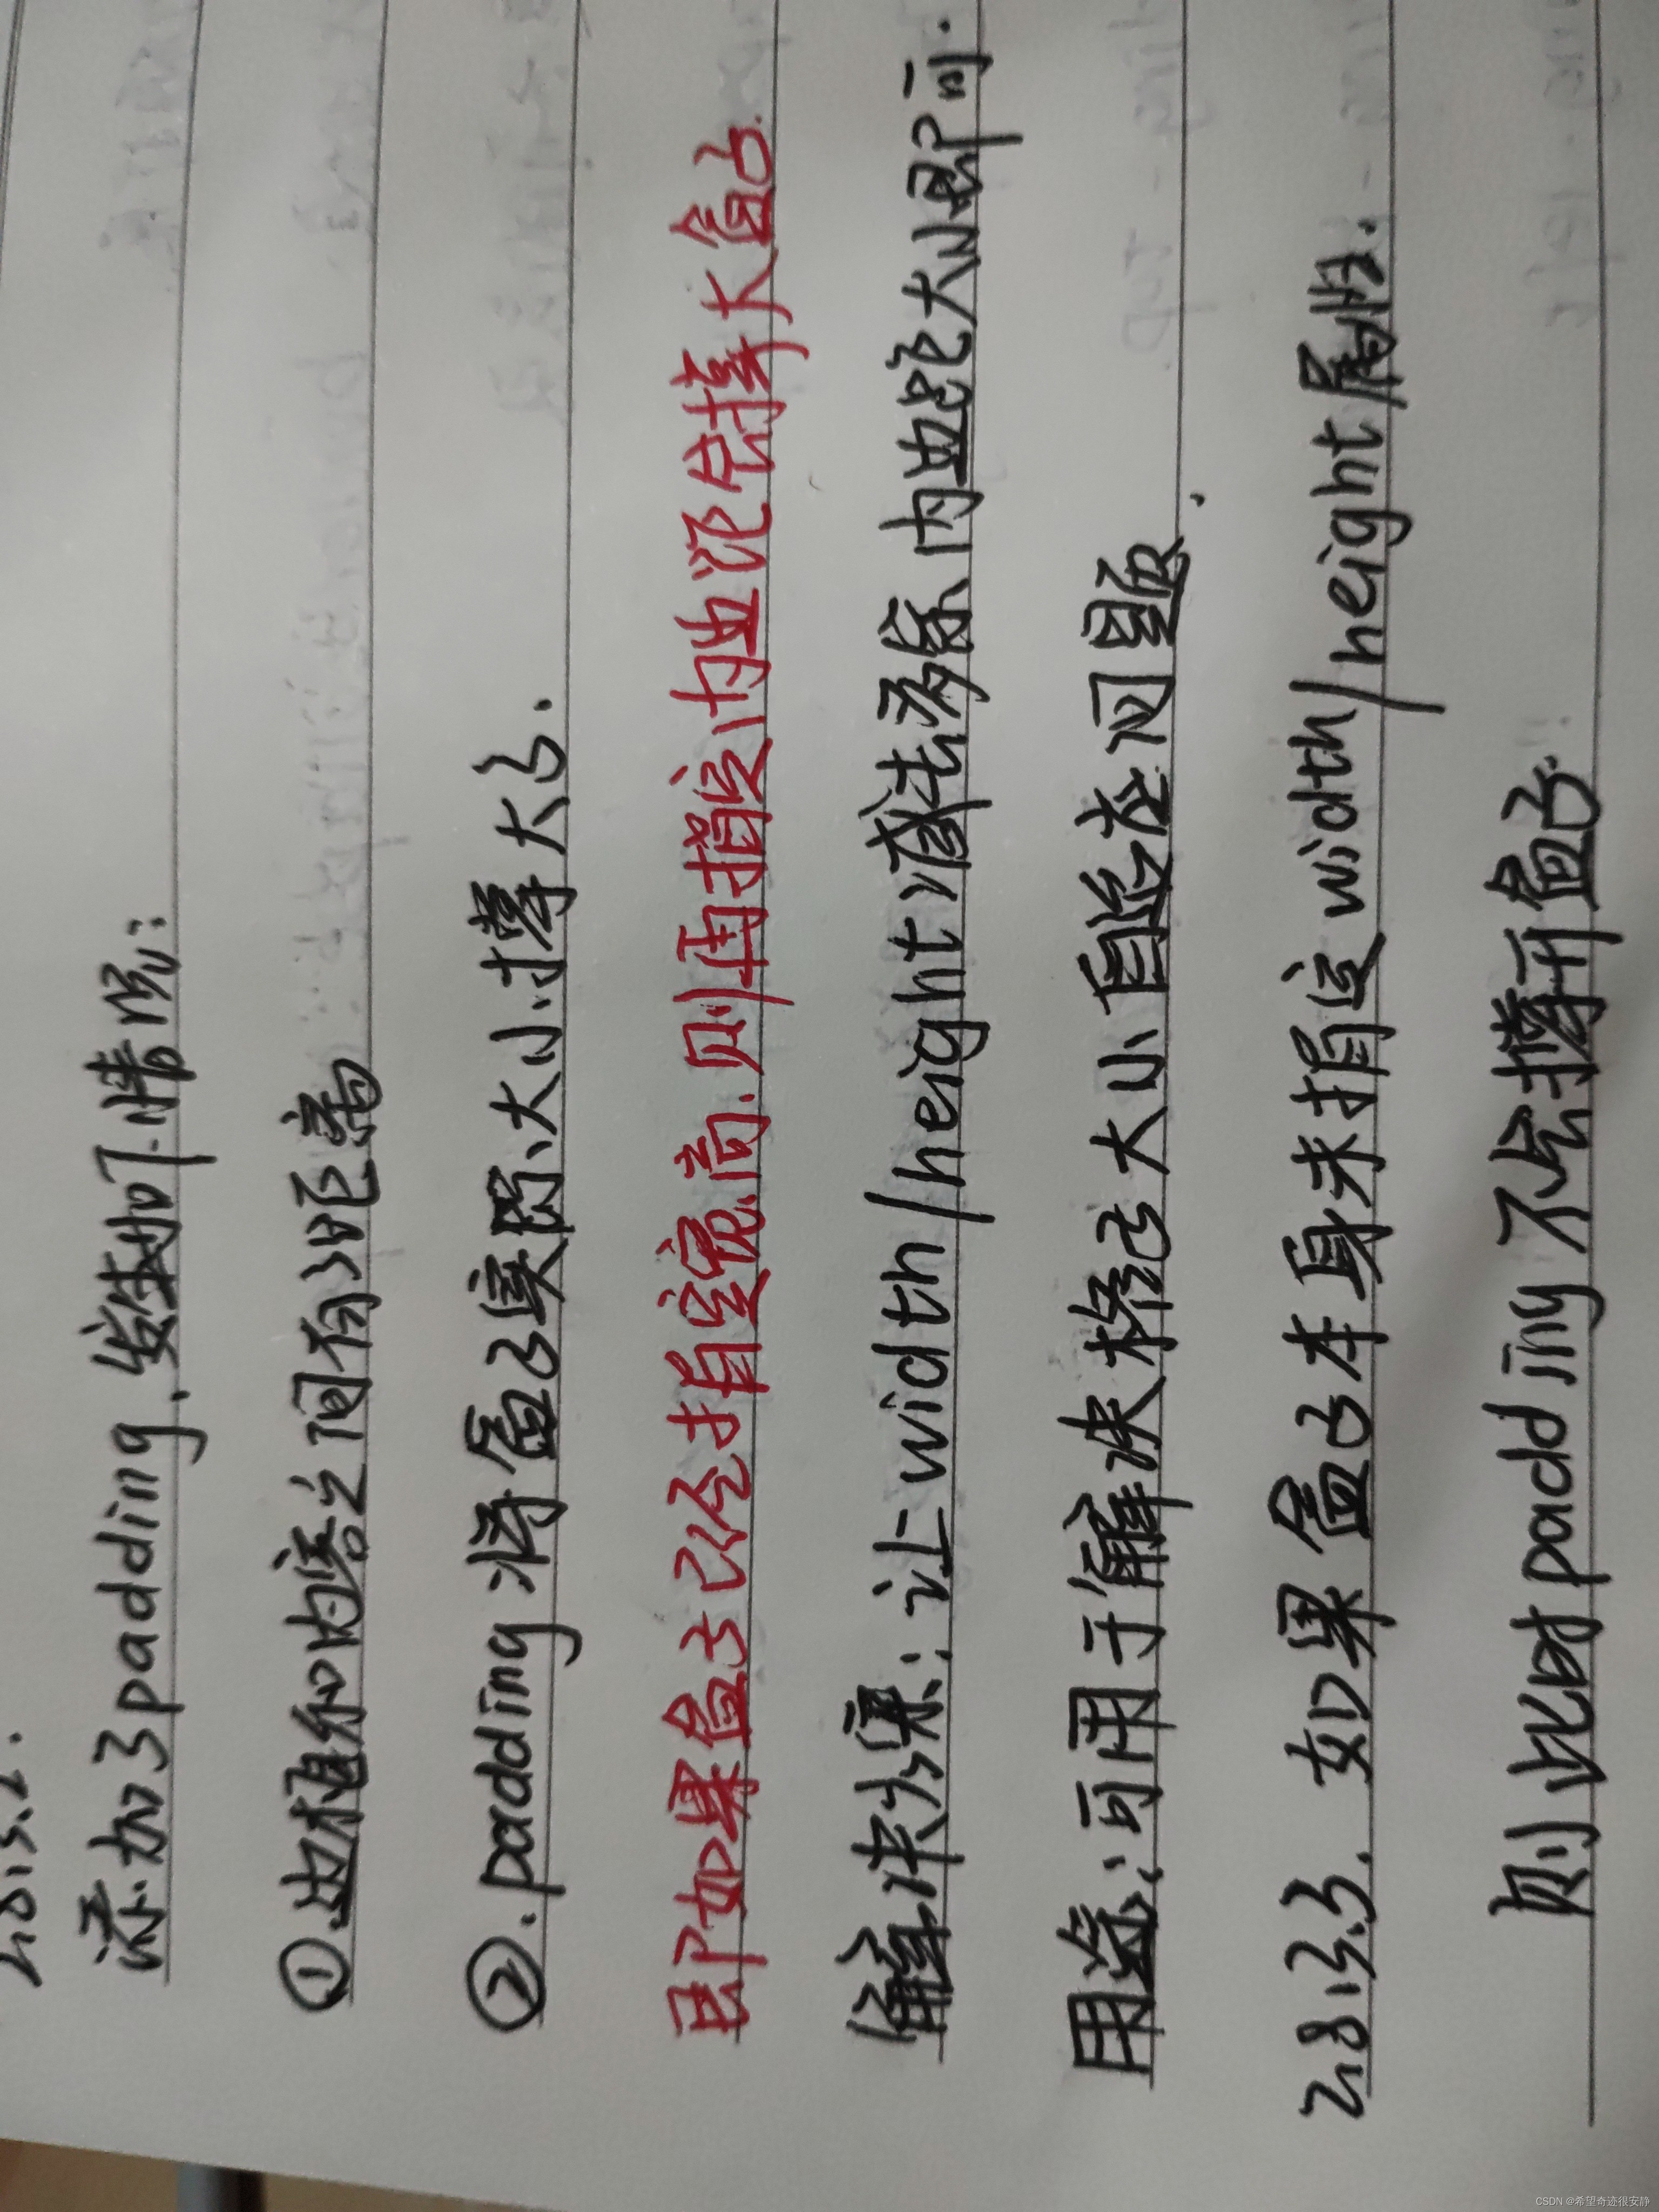 2.8.3.2.
添加了padding,发生如下情况:
①.边框和内容之间有了距离
②.padding将盒子实际大小撑大了.
即如果盒子已经指定宽高.则再指定内边距会撑大盒子.
解决方案:让width/height减去多余内边距大小即可.
用途:可用于解决格子大小自适应问题.
2.8.3.3.如果盒子本身未指定width/height属性.
则此时padding不会撑开盒子.
CSDN @希望奇迹很安静